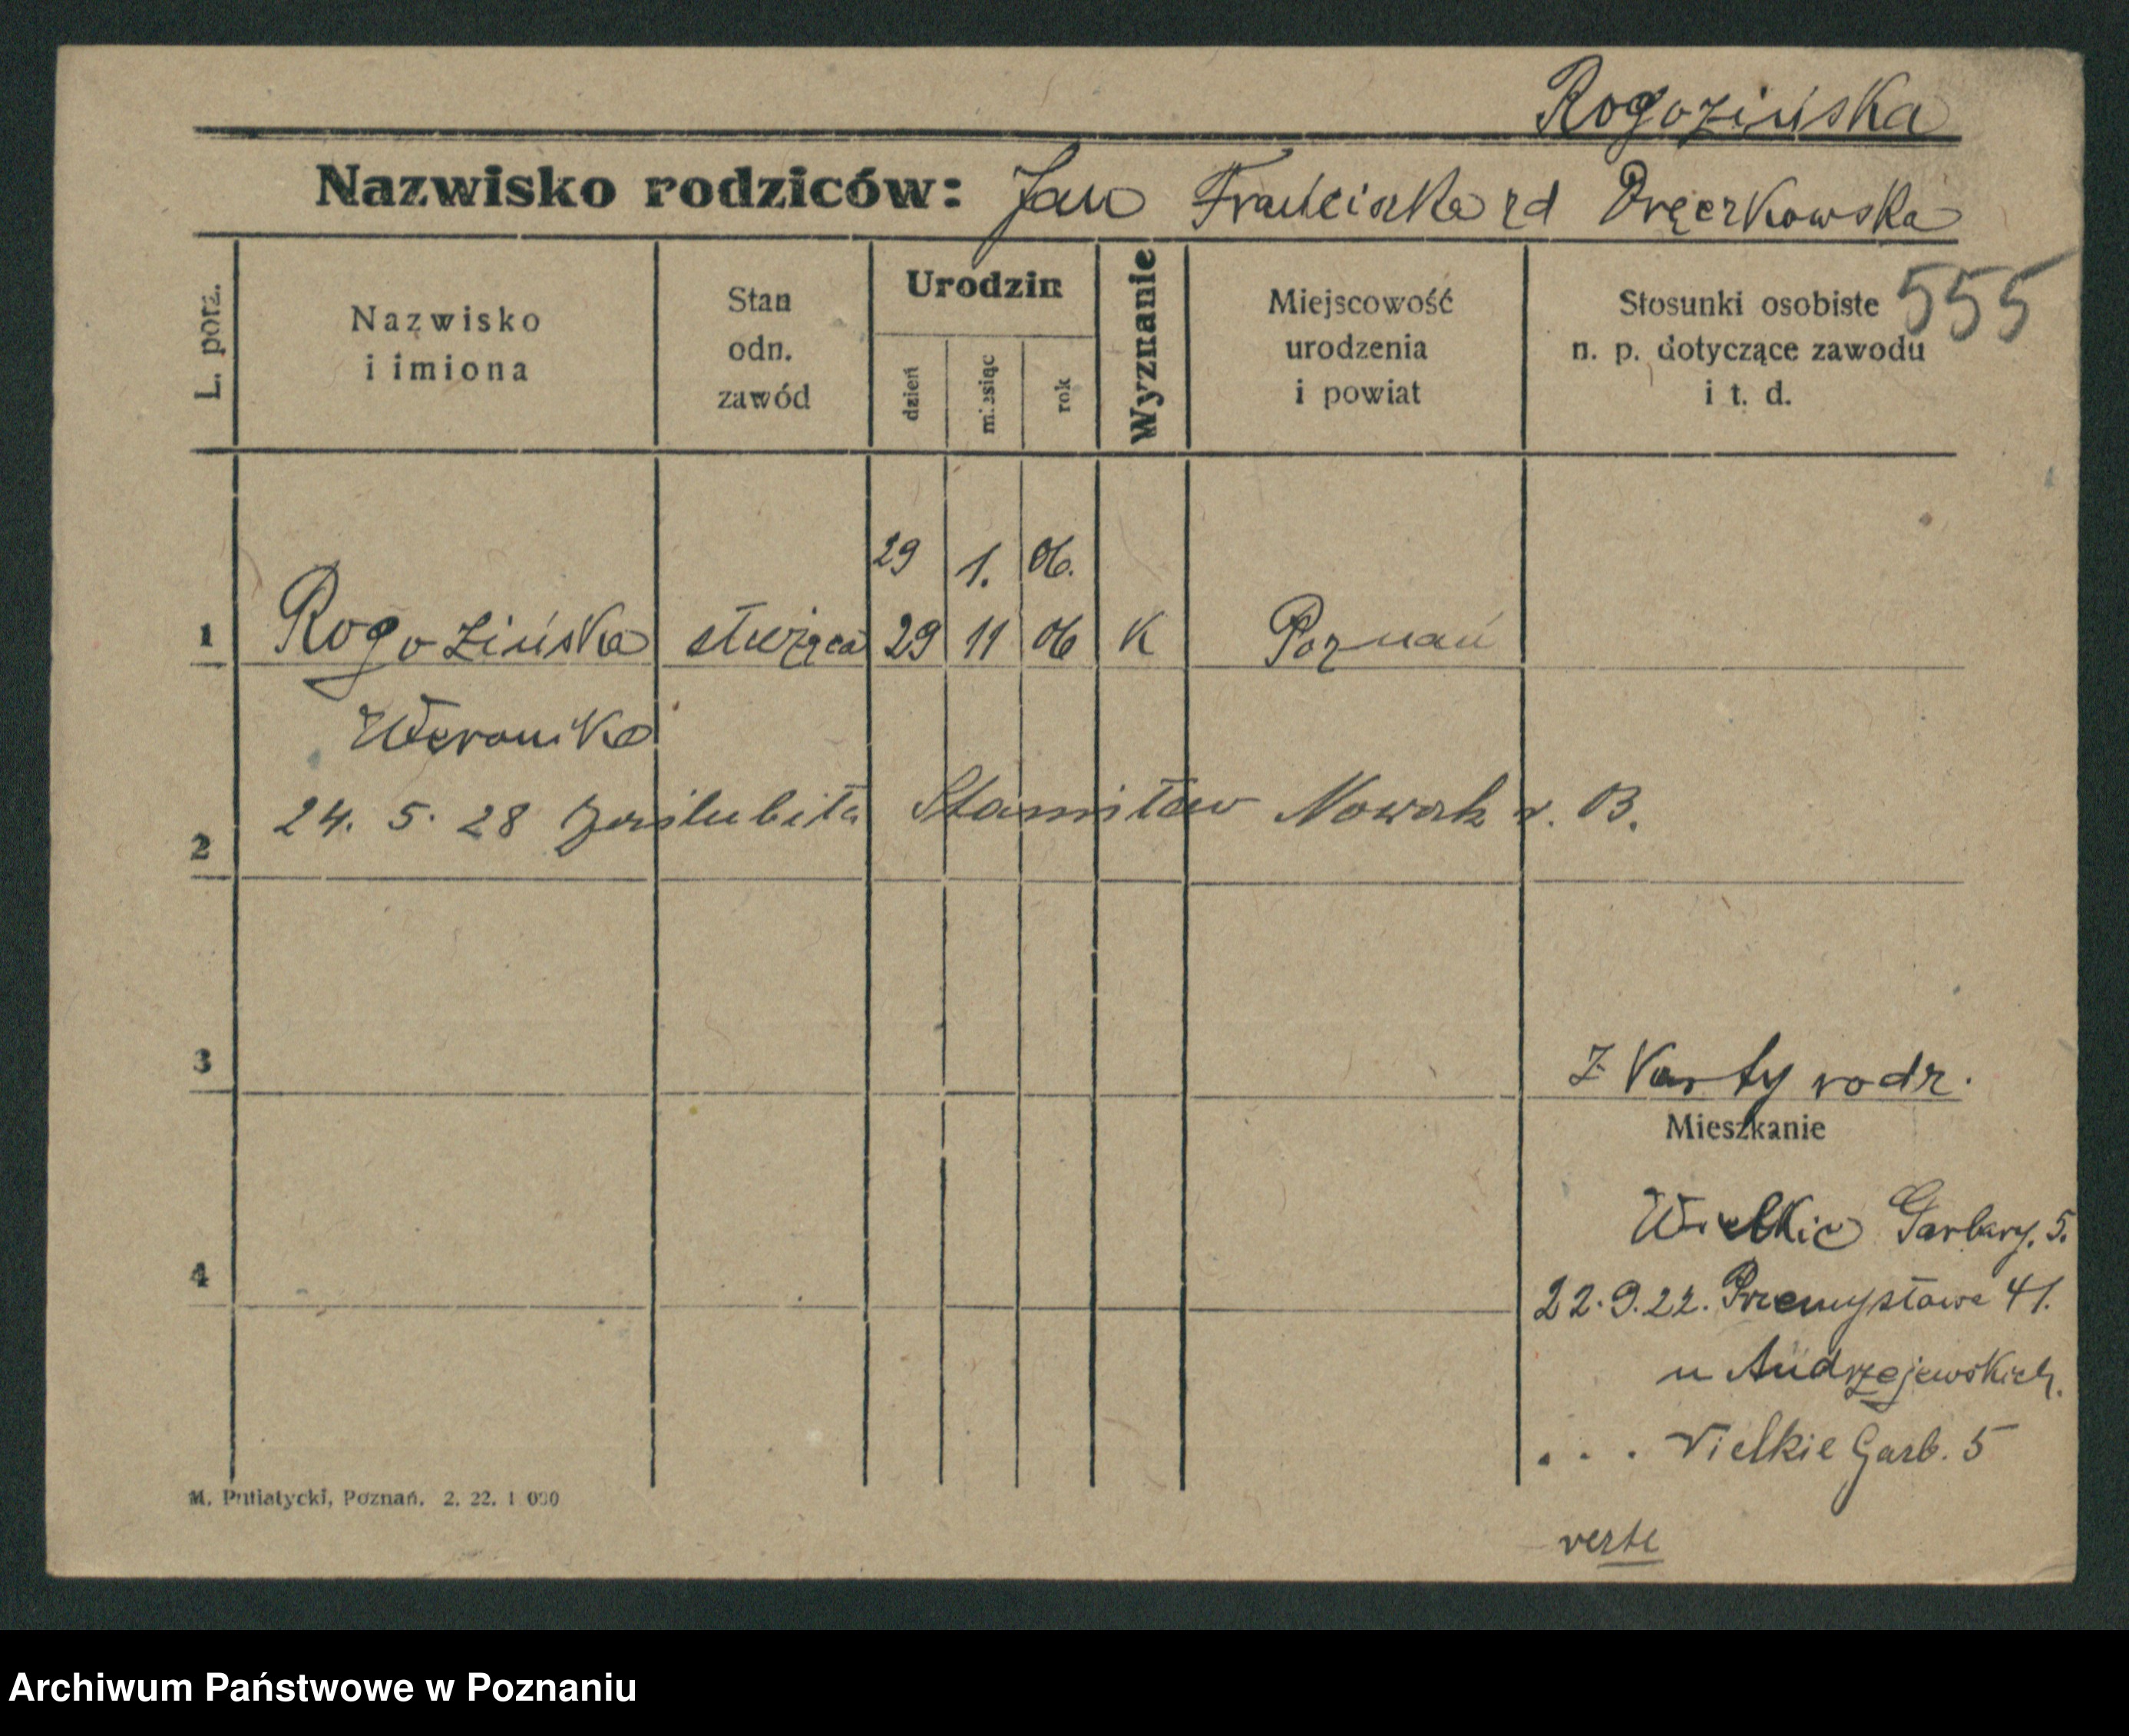 Rogozińska
Nazwisko rodziców: Jan Franciszka zd Pręczkowska
555
L. porz.
Nazwisko
i imiona
Stan
odn.
zawód
Urodzin
dzień
miesiąc
rok
Wyznanie
Miejscowość
urodzenia
i powiat
Stosunki osobiste
n. p. dotyczące zawodu
i t. d.
29 1. 06.
1 Rogozińska służąca 29 11 06 K Poznań
Weronika
2 24. 5. 28 zaślubiła Stanisław Nowak r. B.
3
Z Karty rodz.
Mieszkanie
Wielkie Garbary. 5.
4
22.9.22. Przemysłowa 41.
u Andrzejewskich.
. . . Wielkie Garb. 5
M. Putiatycki, Poznań. 2. 22. 1 000
verte
Archiwum Państwowe w Poznaniu